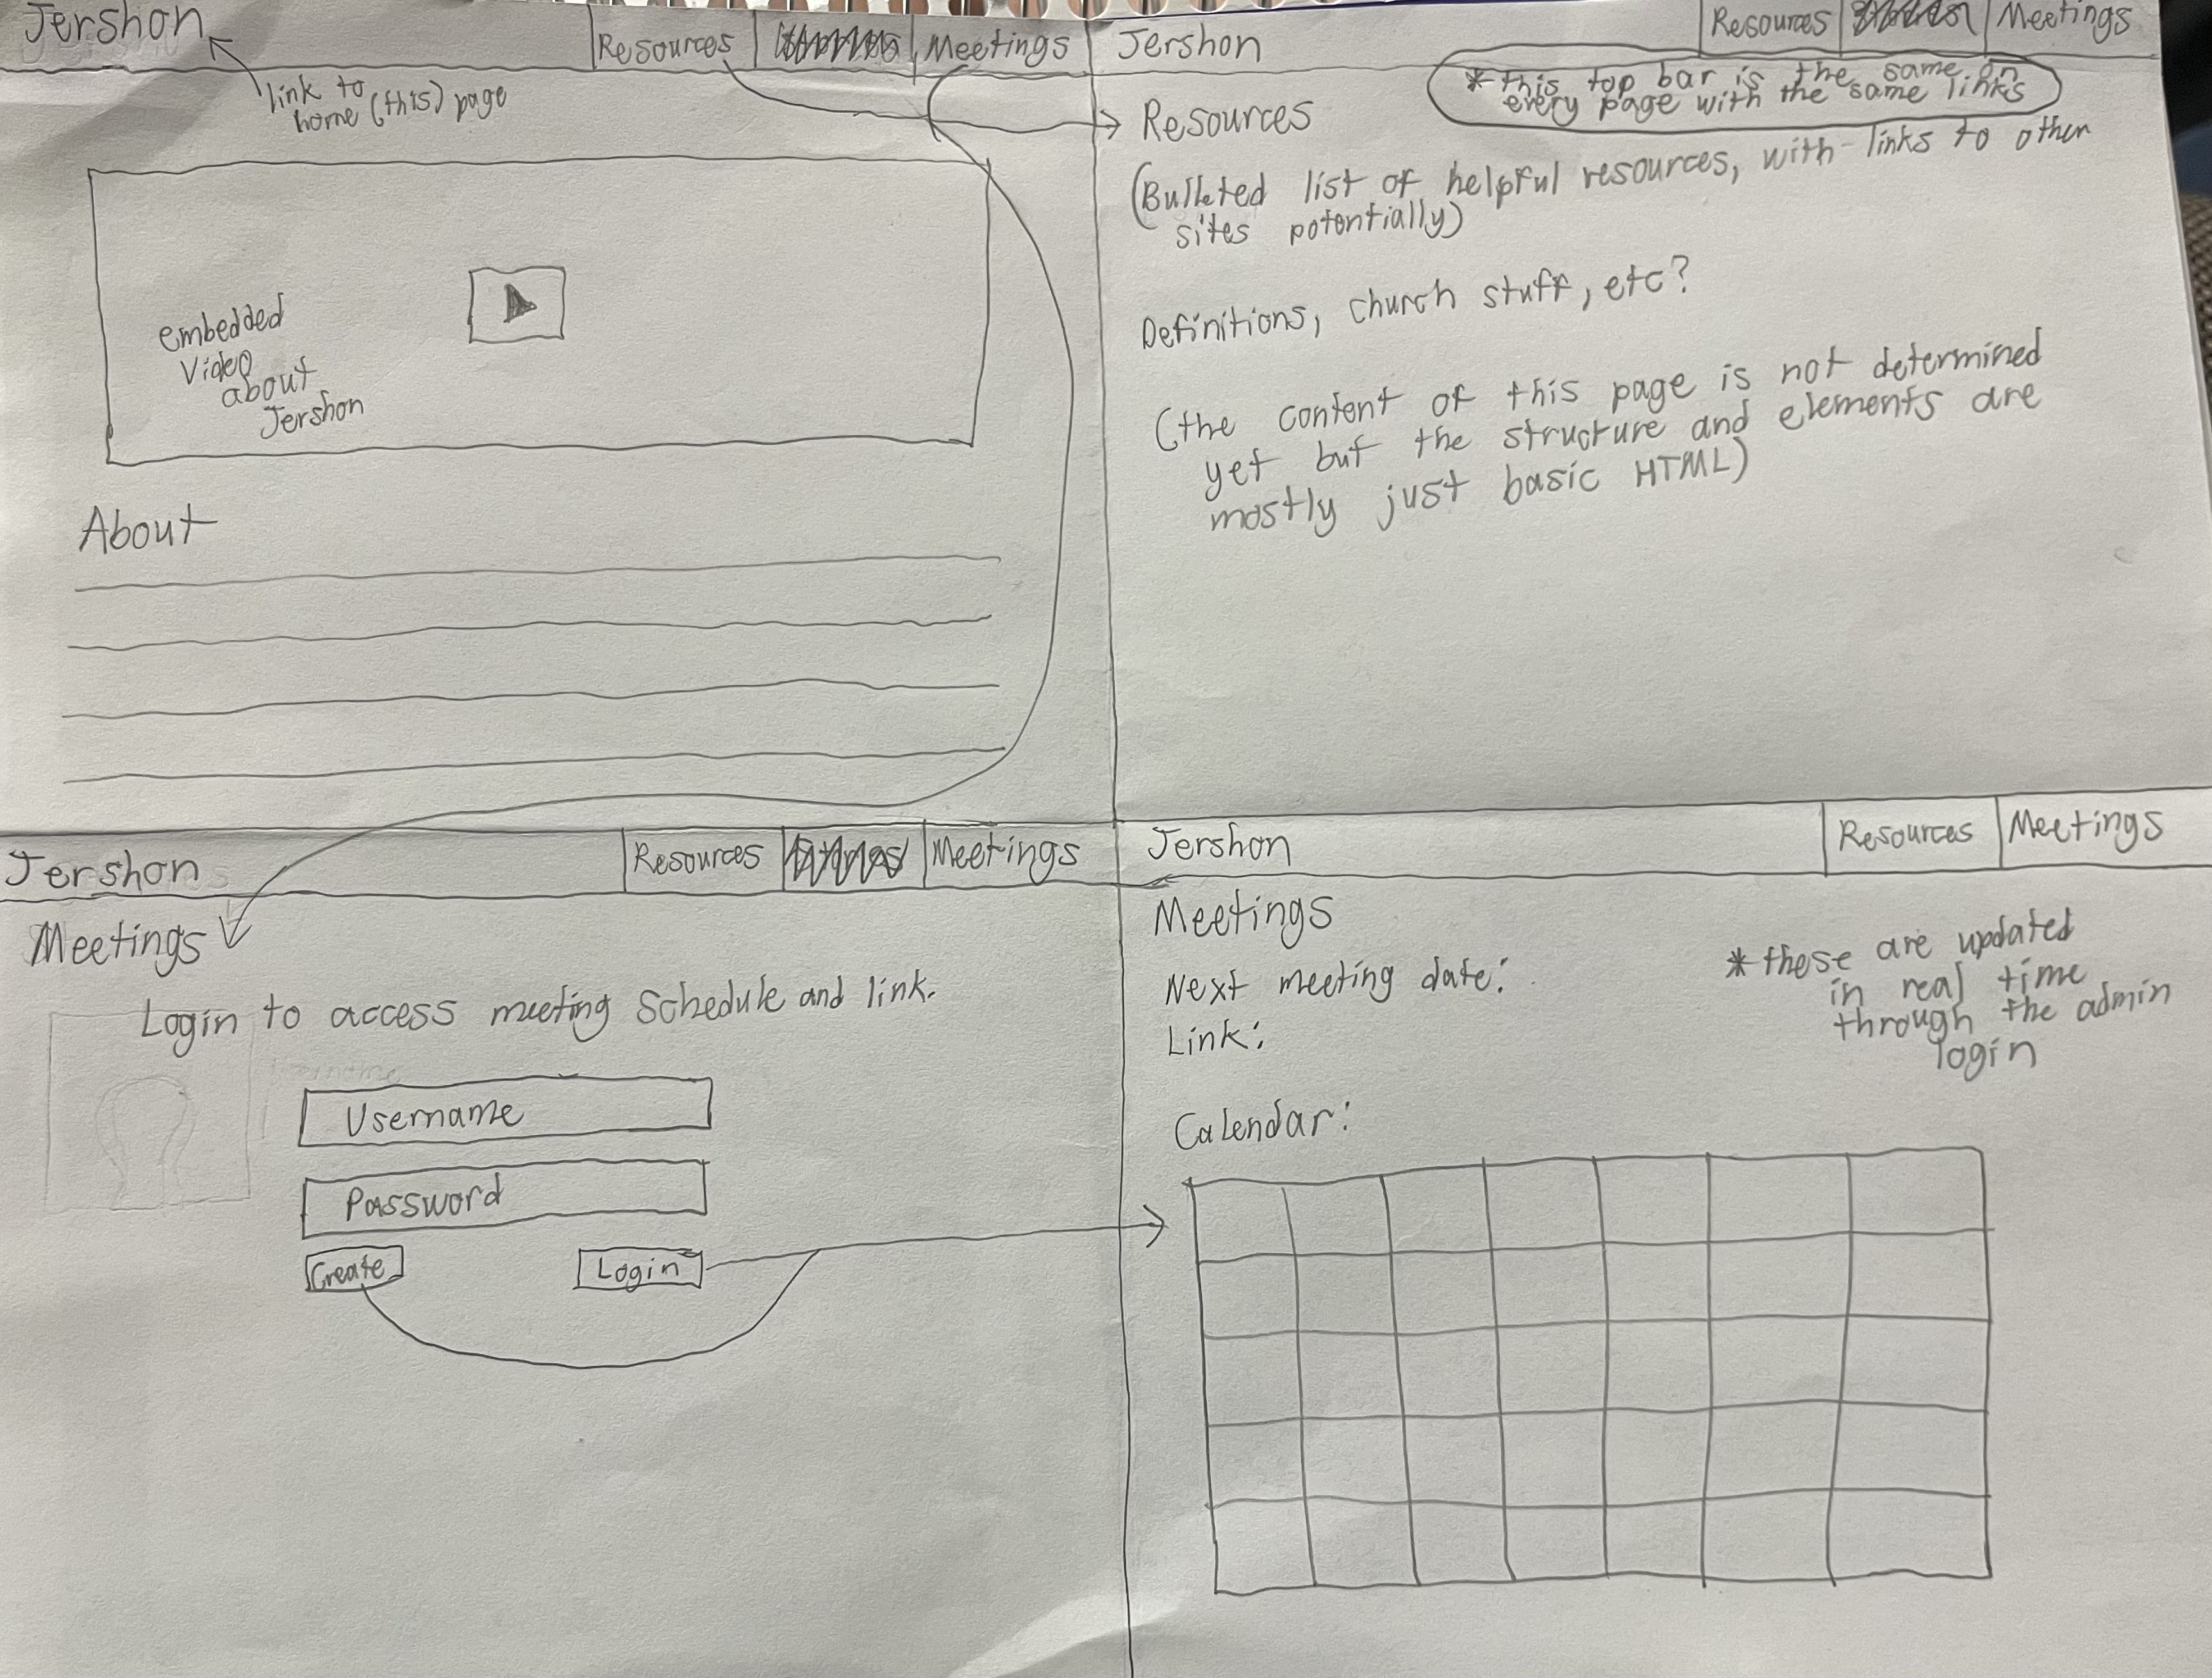 Jershon
Resources
Meetings
link to
home (this) page
embedded
Video
about
Jershon
About
Jershon
Resources
Meetings
*this top bar is the same on
every page with the same links
Resources
(Bulleted list of helpful resources, with links to other
sites potentially)
Definitions, church stuff, etc?
(the content of this page is not determined
yet but the structure and elements are
mostly just basic HTML)
Jershon
Resources
Meetings
Meetings
Login to access meeting schedule and link.
Username
Password
Create
Login
Jershon
Resources
Meetings
Meetings
Next meeting date:
Link:
*these are updated
in real time
through the admin
login
Calendar: